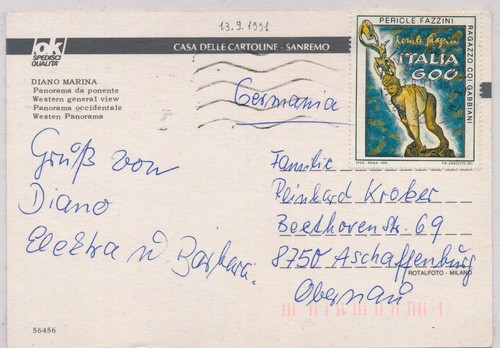 13.9.1991
ok
SPEDISCI
QUALITÀ
CASA DELLE CARTOLINE - SANREMO
DIANO MARINA
Panorama da ponente
Western general view
Panorama occidentale
Westen Panorama
Germania
PERICLE FAZZINI
RAGAZZO COI GABBIANI
ITALIA
600
Gruß von
Diano
Elektra u. Barbara.
Familie
Reinhard Krober
Beethovenstr. 69
8750 Aschaffenburg
Obernau
ROTALFOTO - MILANO
56456